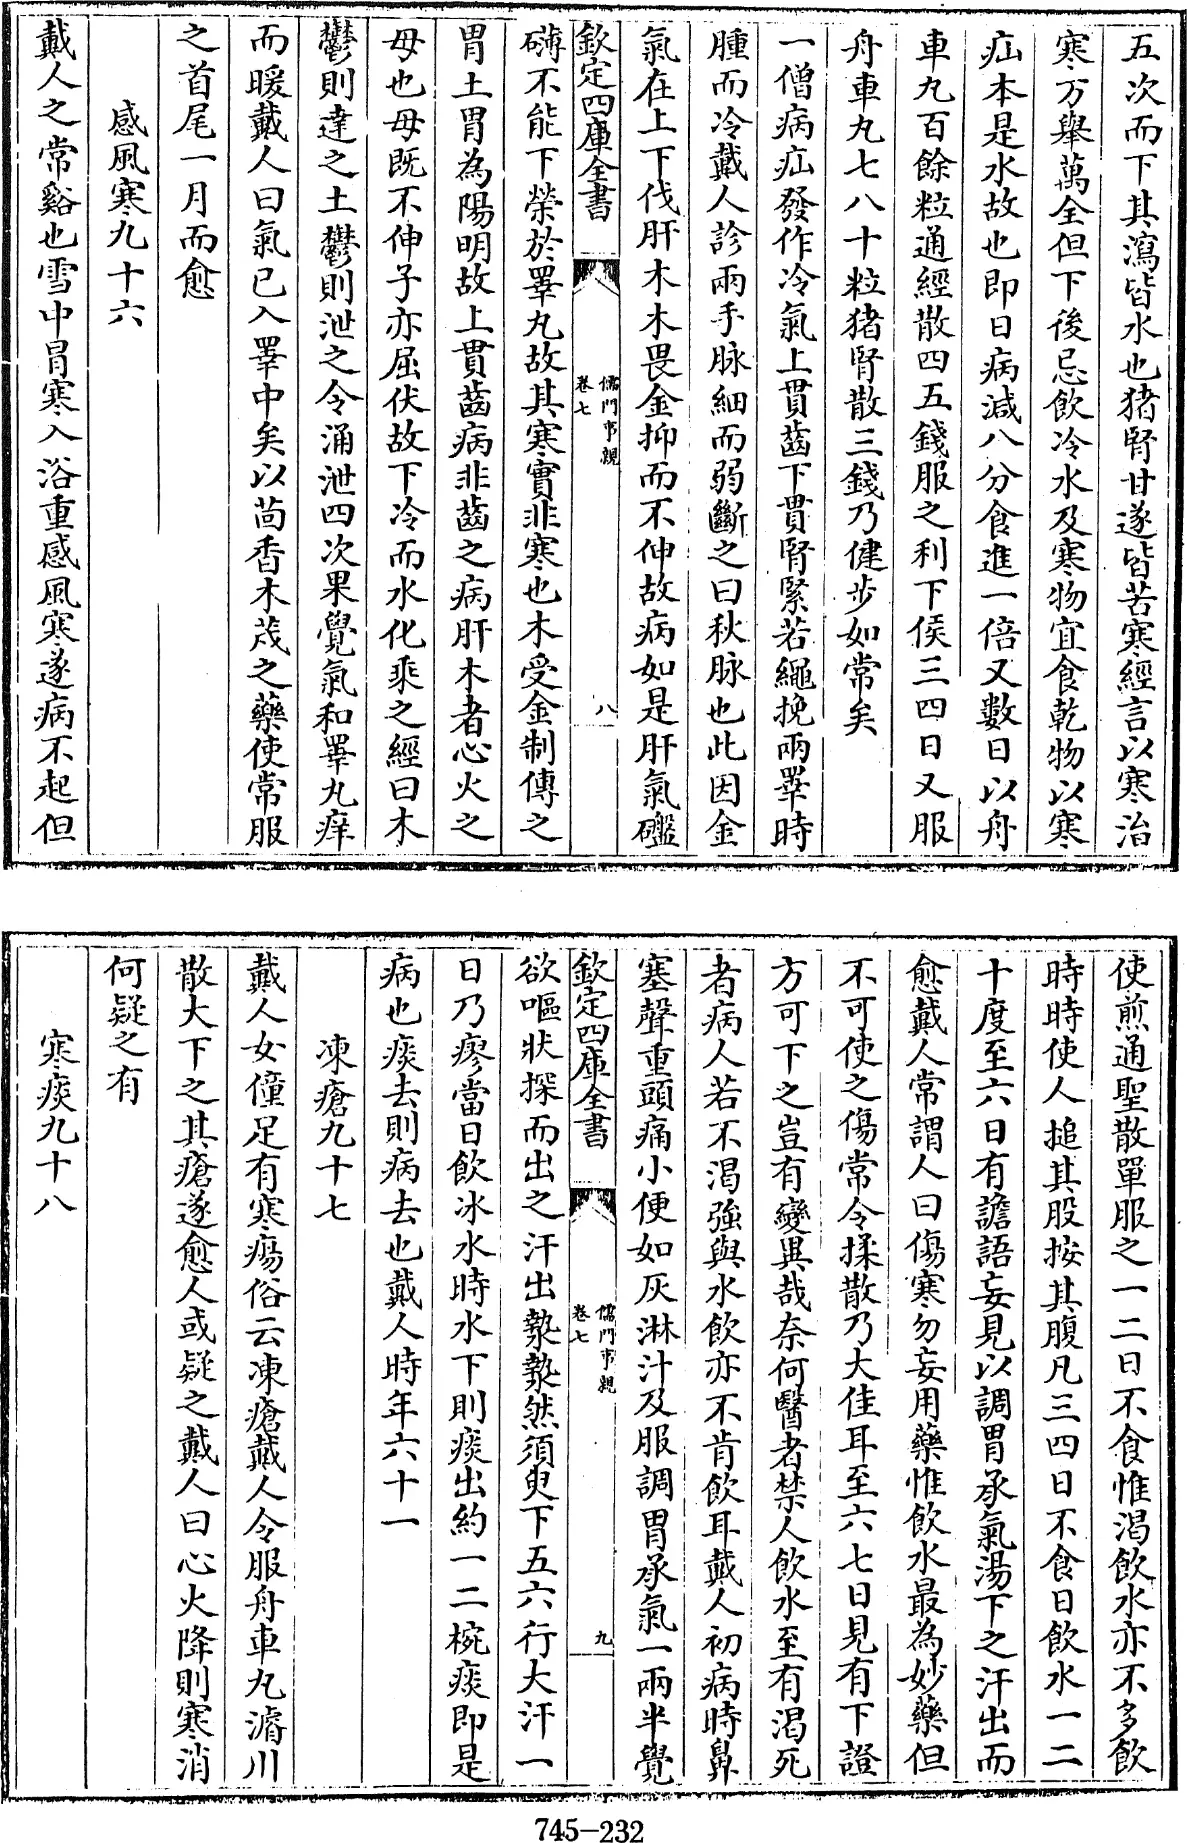 五次而下其瀉皆水也猪腎甘遂皆苦寒經言以寒治
寒万舉萬全但下後忌飲冷水及寒物宜食乾物以寒
疝本是水故也即日病減八分食進一倍又數日以舟
車九百餘粒通經散四五錢服之利下侯三四日又服
舟車丸七八十粒猪腎散三錢乃健步如常矣
一僧病疝發作冷氣上貫齒下貫腎緊若繩挽兩睪時
腫而冷戴人診兩手脉細而弱斷之曰秋脉也此因金
氣在上下伐肝木木畏金抑而不伸故病如是肝氣礷
欽定四庫全書
儒門事親
卷七
八
礴不能下榮於睪丸故其寒實非寒也木受金制傳之
胃土胃為陽明故上貫齒病非齒之病肝木者心火之
母也母既不伸子亦屈伏故下冷而水化乘之經曰木
鬱則達之土鬱則泄之令涌泄四次果覺氣和睪丸痒
而暖戴人曰氣已入睪中矣以茴香木茂之藥使常服
之首尾一月而愈
感風寒九十六
戴人之常谿也雪中冒寒入浴重感風寒遂病不起但
使煎通聖散單服之一二日不食惟渴飲水亦不多飲
時時使人搥其股按其腹凡三四日不食日飲水一二
十度至六日有譫語妄見以調胃承氣湯下之汗出而
愈戴人常謂人曰傷寒勿妄用藥惟飲水最為妙藥但
不可使之傷常令揉散乃大佳耳至六七日見有下證
方可下之豈有變異哉奈何醫者禁人飲水至有渴死
者病人若不渴強與水飲亦不肯飲耳戴人初病時鼻
塞聲重頭痛小便如灰淋汁及服調胃承氣一兩半覺
欽定四庫全書
儒門事親
卷七
九
欲嘔狀探而出之汗出漐漐然須臾下五六行大汗一
日乃瘳當日飲冰水時水下則痰出約一二椀痰即是
病也痰去則病去也戴人時年六十一
凍瘡九十七
戴人女僮足有寒瘍俗云凍瘡戴人令服舟車丸濬川
散大下之其瘡遂愈人或疑之戴人曰心火降則寒消
何疑之有
寒痰九十八
745-232